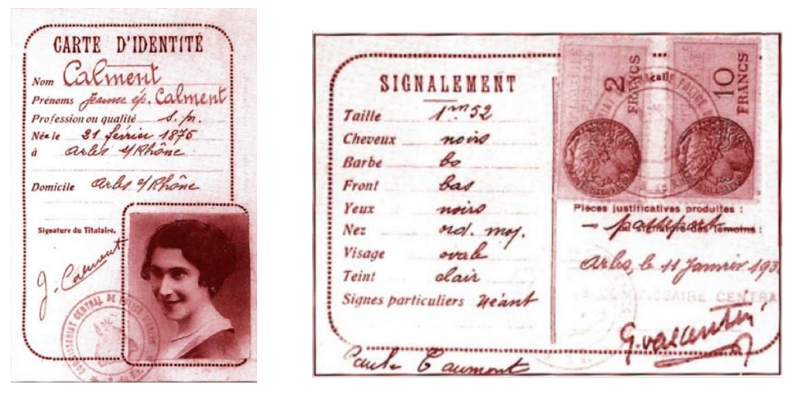 CARTE D'IDENTITÉ
Nom Calment
Prénoms Jeanne ép. Calment
Profession ou qualité s. p.
Née le 21 fevrier 1875
à Arles s/Rhône
Domicile Arles s/Rhône
Signature du Titulaire,
J. Calment
COMMISSARIAT CENTRAL DE POLICE
SIGNALEMENT
Taille 1m52
Cheveux noirs
Barbe
Front bas
Yeux noirs
Nez ord. moy.
Visage ovale
Teint clair
Signes particuliers Néant
2 FRANCS
10 FRANCS
Pièces justificatives produites :
témoins :
Arles, le 11 Janvier 193
COMMISSAIRE CENTRA
G. Valentin